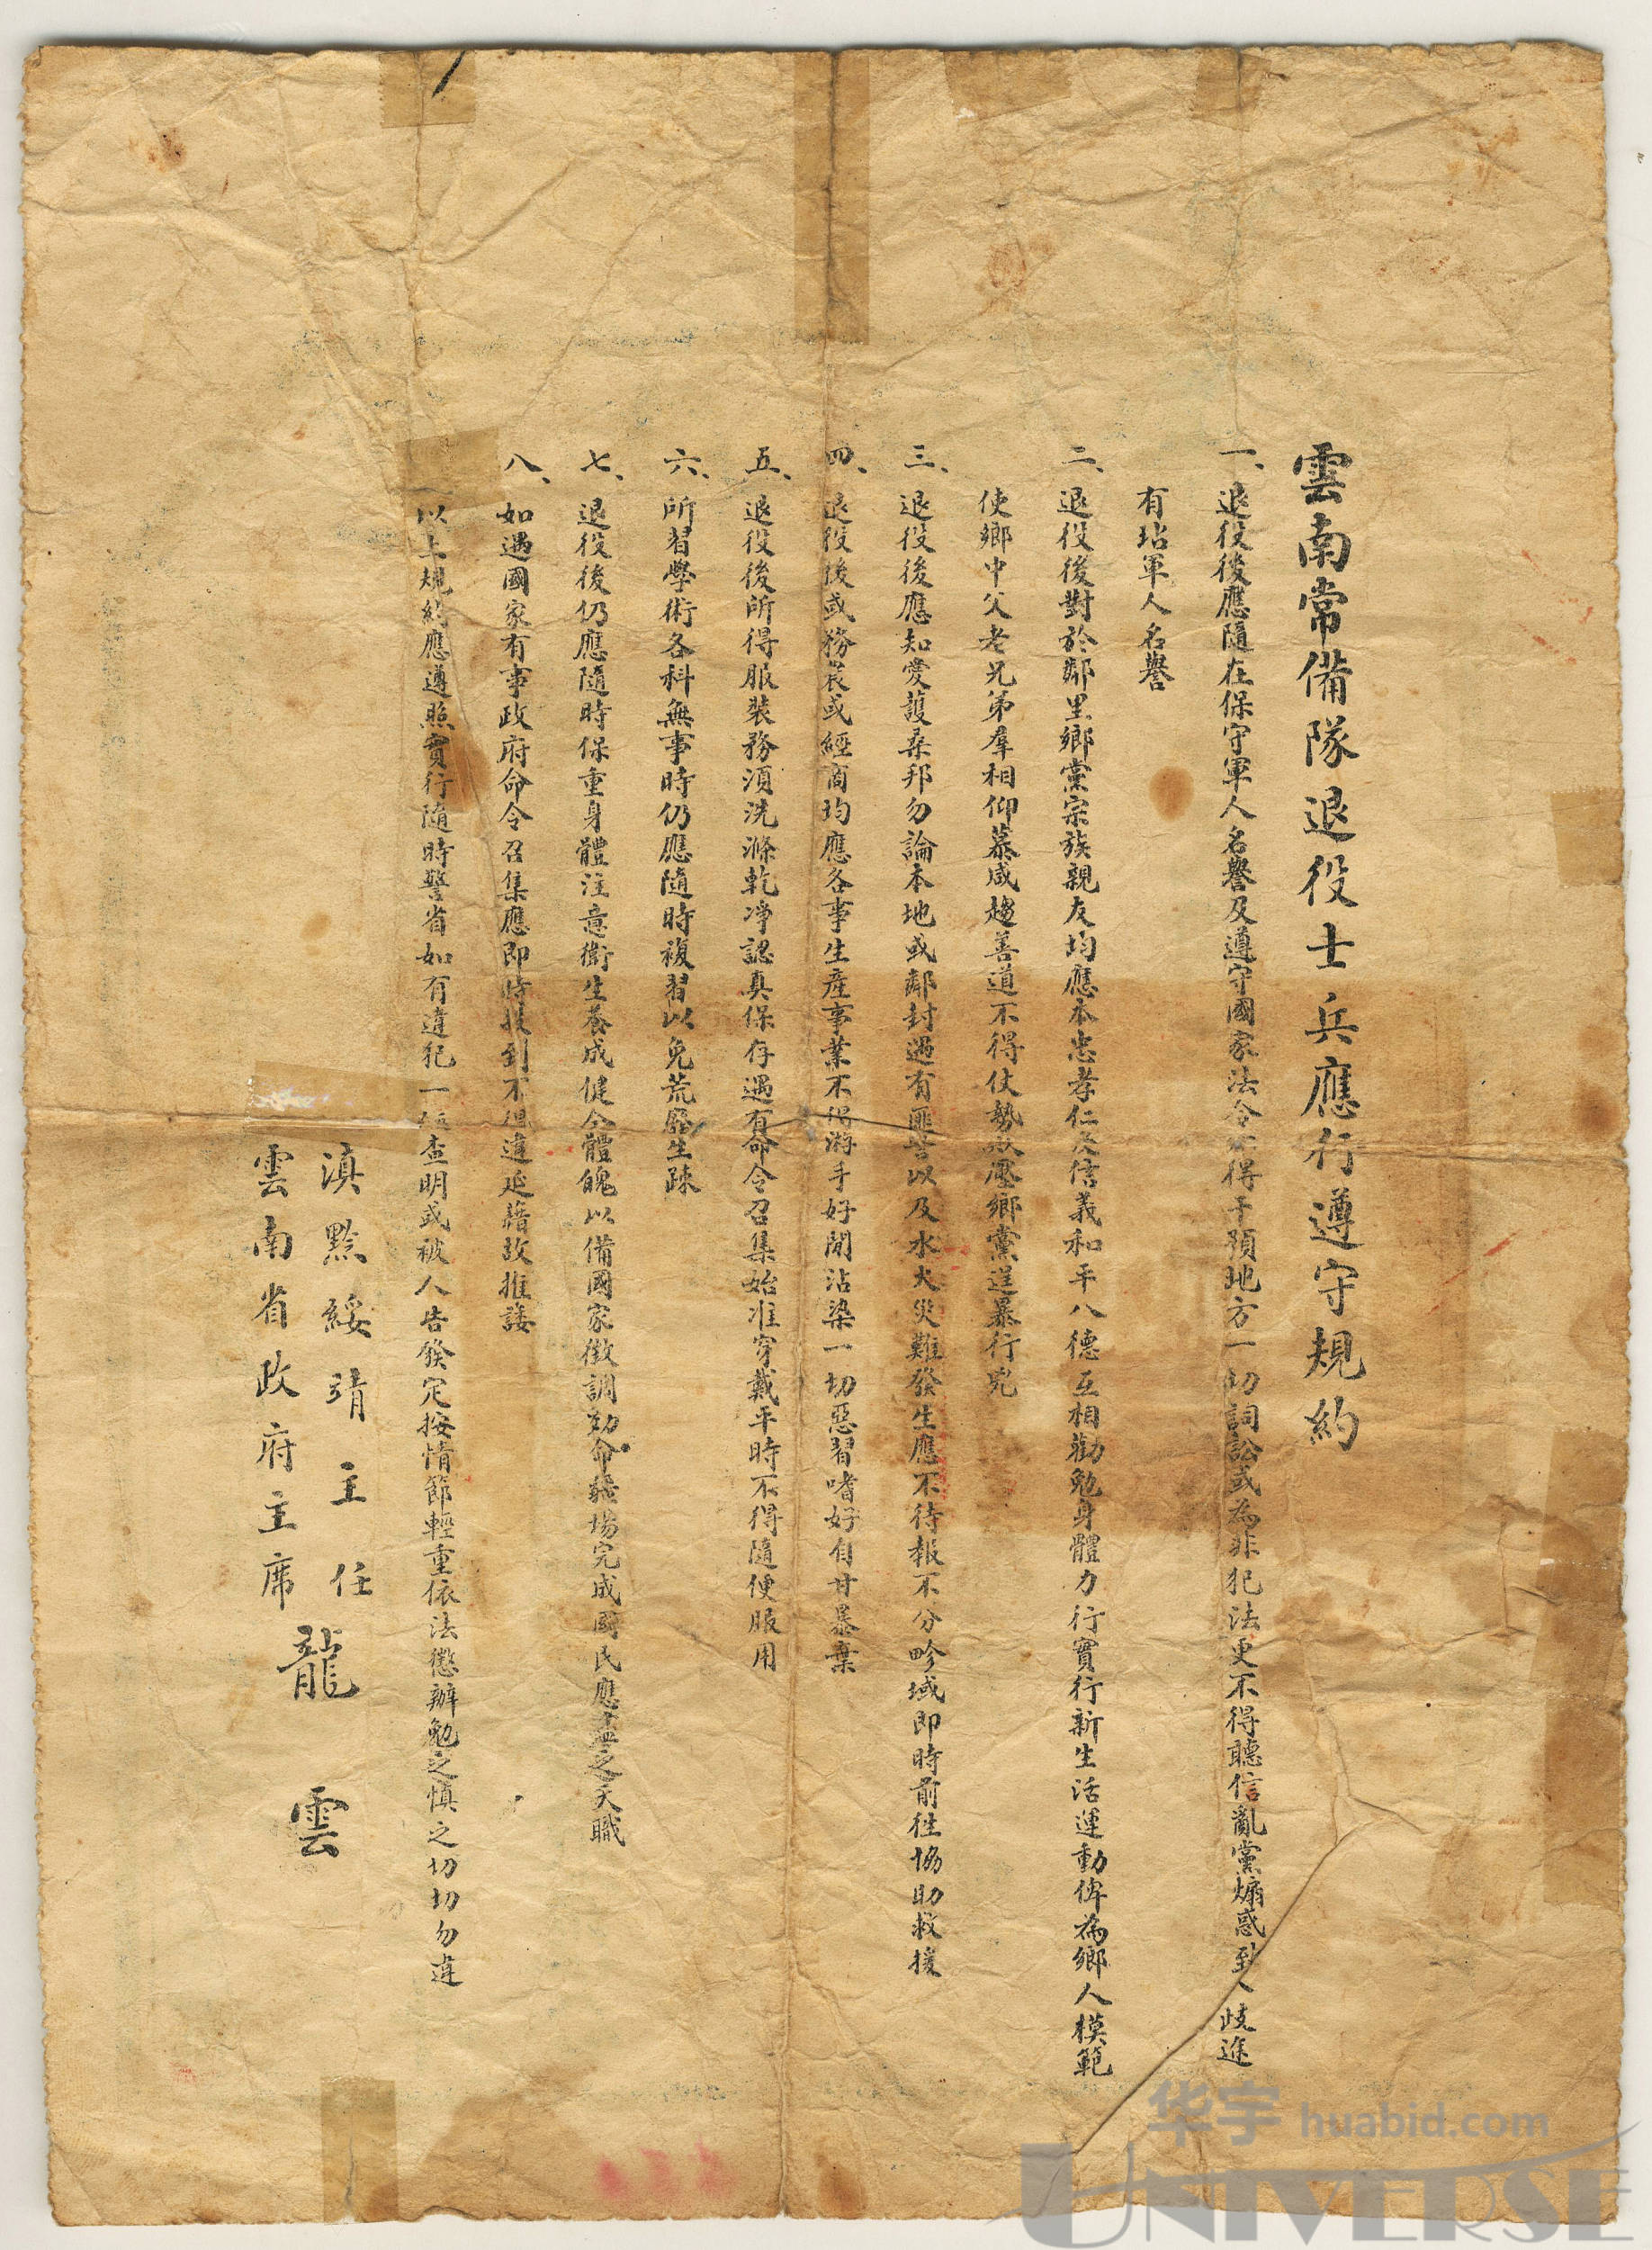 雲南常備隊退役士兵應行遵守規約
一、退役後應隨在保守軍人名譽及遵守國家法令不得干預地方一切詞訟或為非犯法更不得聽信亂黨煽惑致入歧途
有玷軍人名譽
二、退役後對於鄰里鄉黨宗族親友均應本忠孝仁愛信義和平八德互相勸勉身體力行實行新生活運動俾為鄉人模範
使鄉中父老兄弟羣相仰慕咸趨善道不得仗勢欺壓鄉黨逞暴行兇
三、退役後應知愛護桑邦勿論本地或鄰封遇有匪警以及水火災難發生應不待報不分畛域即時前往協助救援
四、退役後或務農或經商均應各事生產事業不得游手好閒沾染一切惡習嗜好自甘暴棄
五、退役後所得服裝務須洗滌乾凈認真保存遇有命令召集始准穿戴平時不得隨便服用
六、所習學術各科無事時仍應隨時複習以免荒廢生疎
七、退役後仍應隨時保重身體注意衛生養成健全體魄以備國家徵調効命疆場完成國民應盡之天職
八、如遇國家有事政府命令召集應即時投到不得違延藉故推諉
以上規約應遵照實行隨時警省如有違犯一經查明或被人告發定按情節輕重依法懲辦勉之慎之切切勿違
滇黔綏靖主任
雲南省政府主席 龍雲
华宇 huabid.com
UNIVERSE